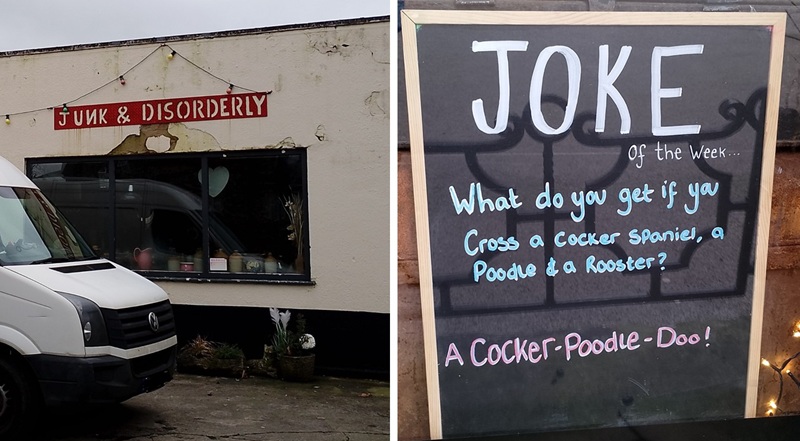 JUNK & DISORDERLY
JOKE
Of the Week...
What do you get if you
Cross a Cocker Spaniel, a
Poodle & a Rooster?
A Cocker-Poodle-Doo!